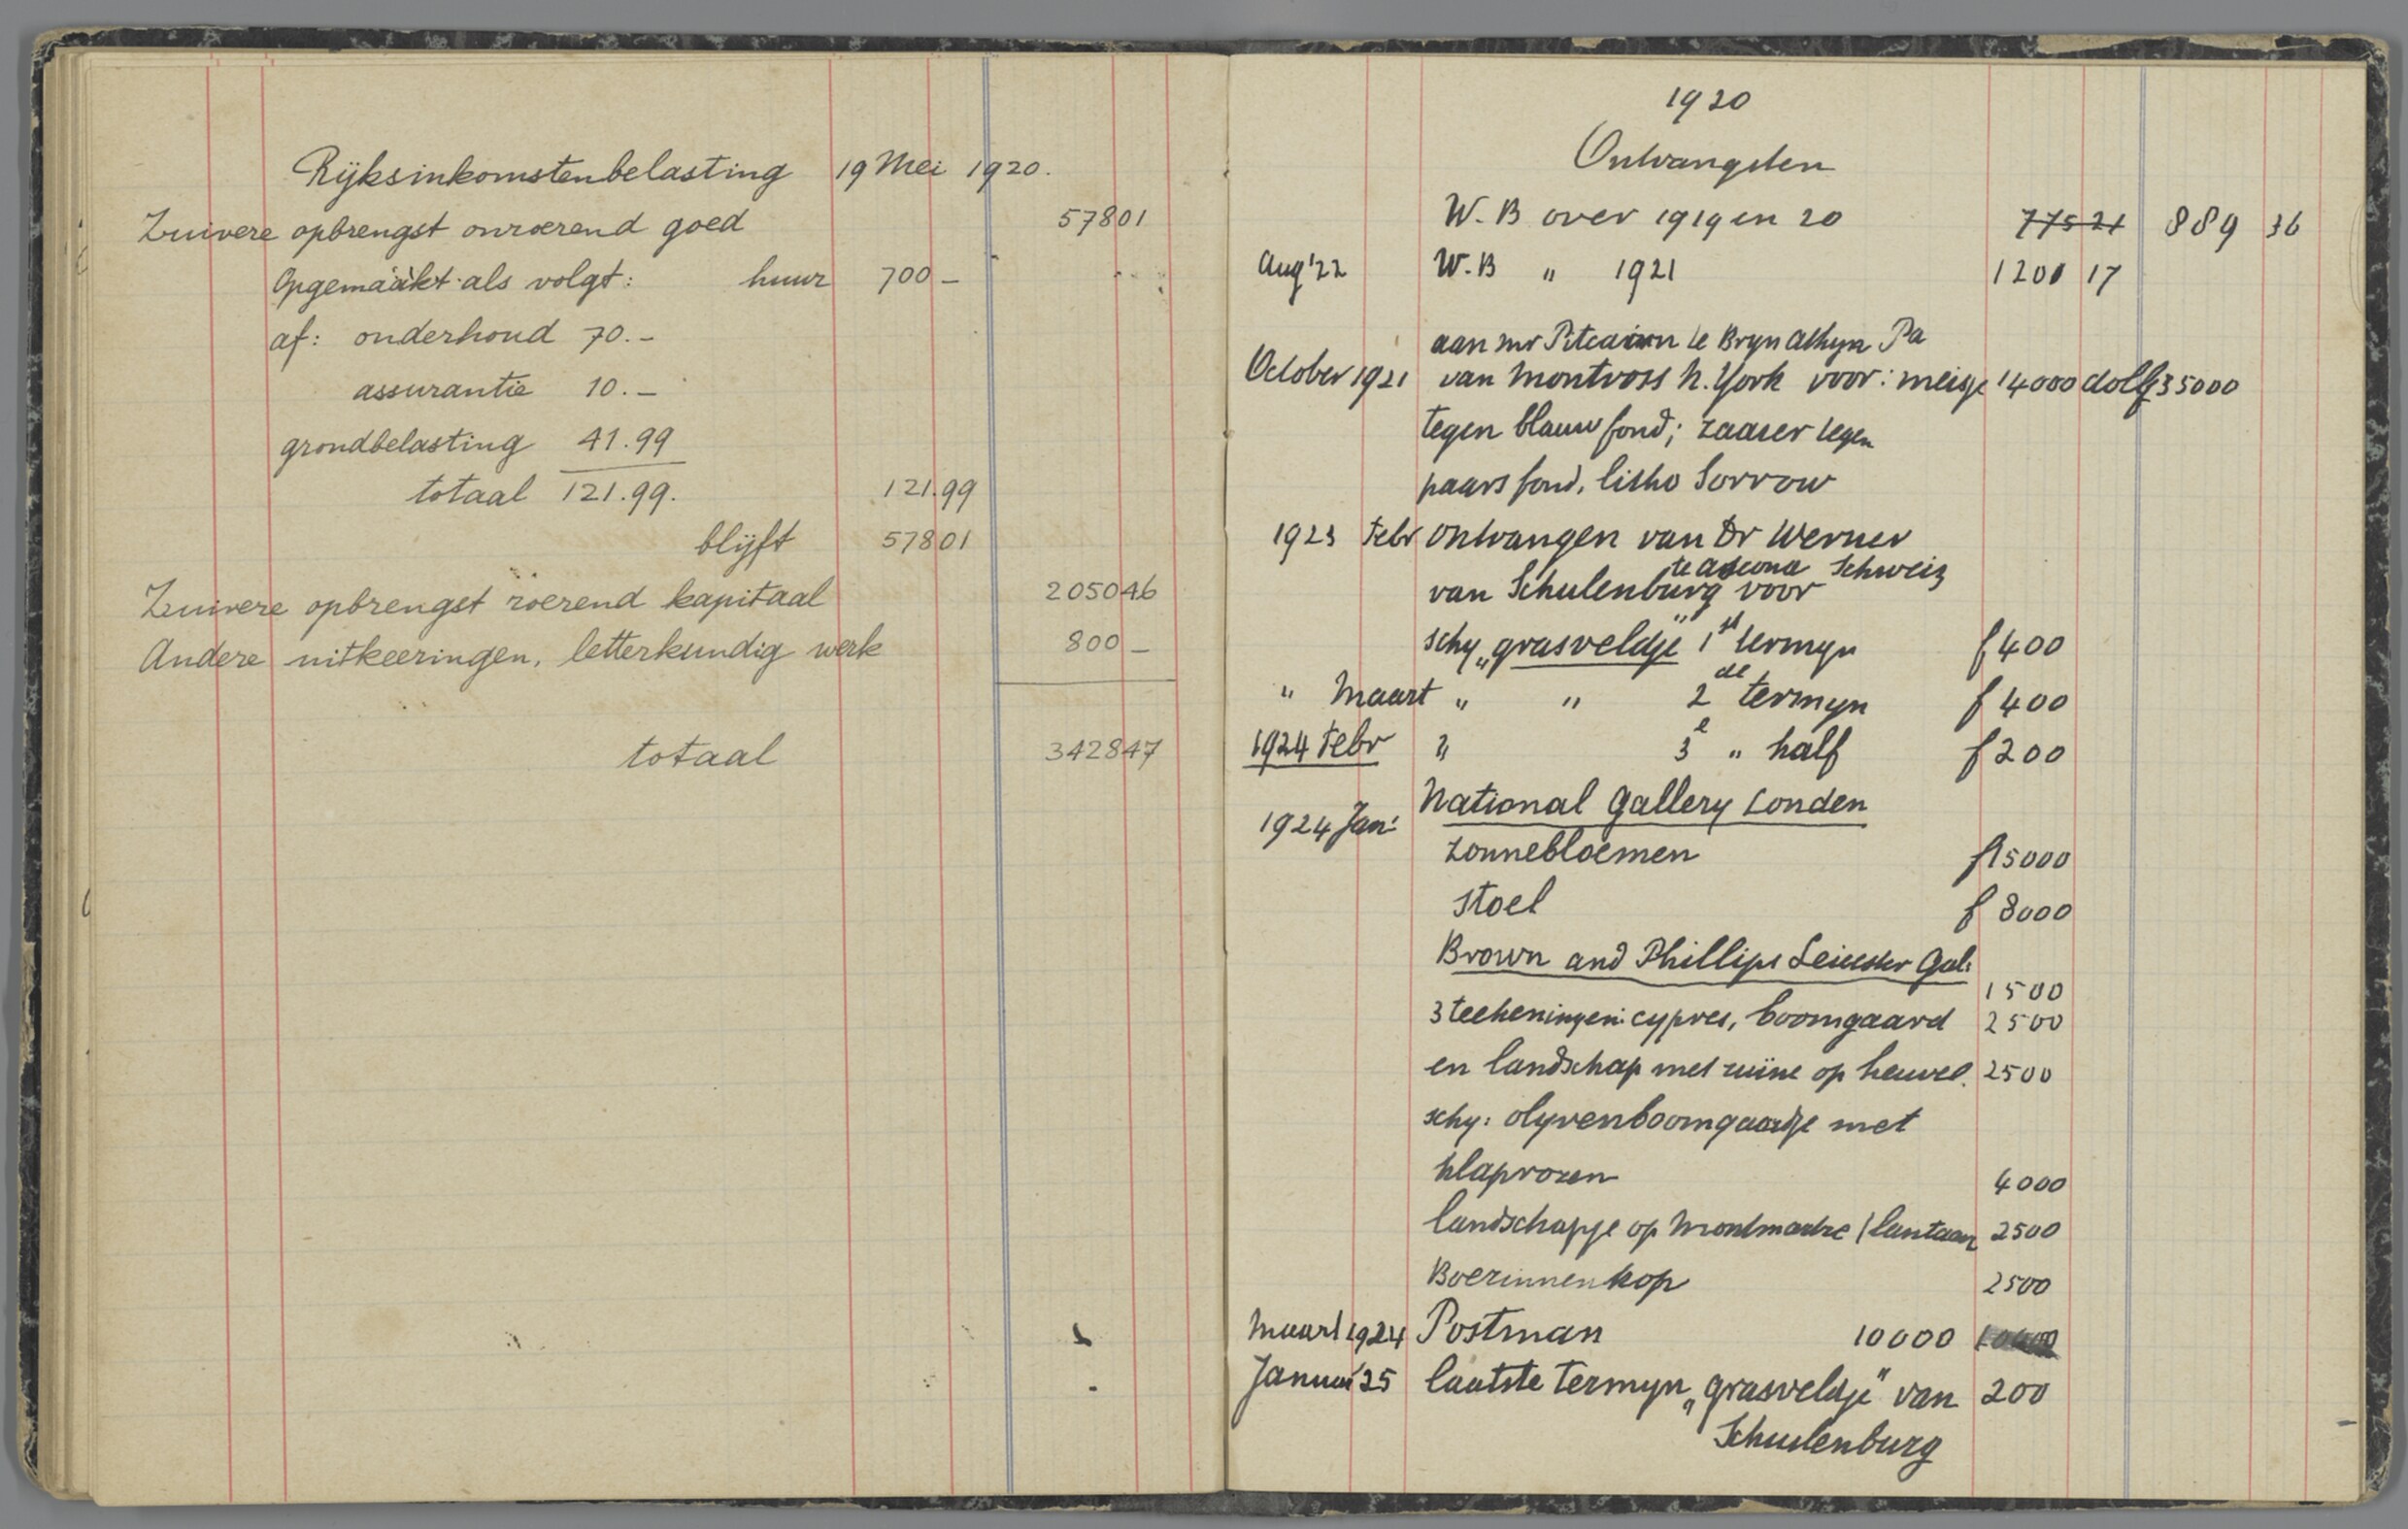 Rijksinkomstenbelasting 19 Mei 1920.
Zuivere opbrengst onroerend goed 57801
Opgemaakt als volgt: huur 700 –
af: onderhoud 70.–
assurantie 10.–
grondbelasting 41.99
totaal 121.99. 121.99
blijft 57801
Zuivere opbrengst roerend kapitaal 205046
Andere uitkeeringen, letterkundig werk 800 –
totaal 342847
1920
Ontvangsten
W.B over 1919 en 20 775 21 889 36
Aug '22 W.B " 1921 1201 17
aan mr Pitcairn te Bryn Athyn Pa
October 1921 van Montross N. York voor: meisje 14000 doll f35000
tegen blauw fond; zaaier tegen
paars fond, litho Sorrow
1923 Febr ontvangen van Dr Werner
te Ascona Schweiz
van Schulenburg voor
schy „grasveldje" 1st termyn f 400
" Maart " " 2de termyn f 400
1924 Febr " 3e " half f 200
National Gallery Londen
1924 Jan:
Zonnebloemen f15000
Stoel f 8000
Brown and Phillips Leicester Gal:
1500
3 teekeningen: cypres, boomgaard 2500
en landschap met ruïne op heuvel. 2500
schy: olyvenboomgaardje met
klaprozen 4000
landschapje op Montmartre (lantaarn 2500
Boerinnenkop 2500
Maart 1924 Postman 10000
Januari '25 laatste termyn „grasveldje" van 200
Schulenburg